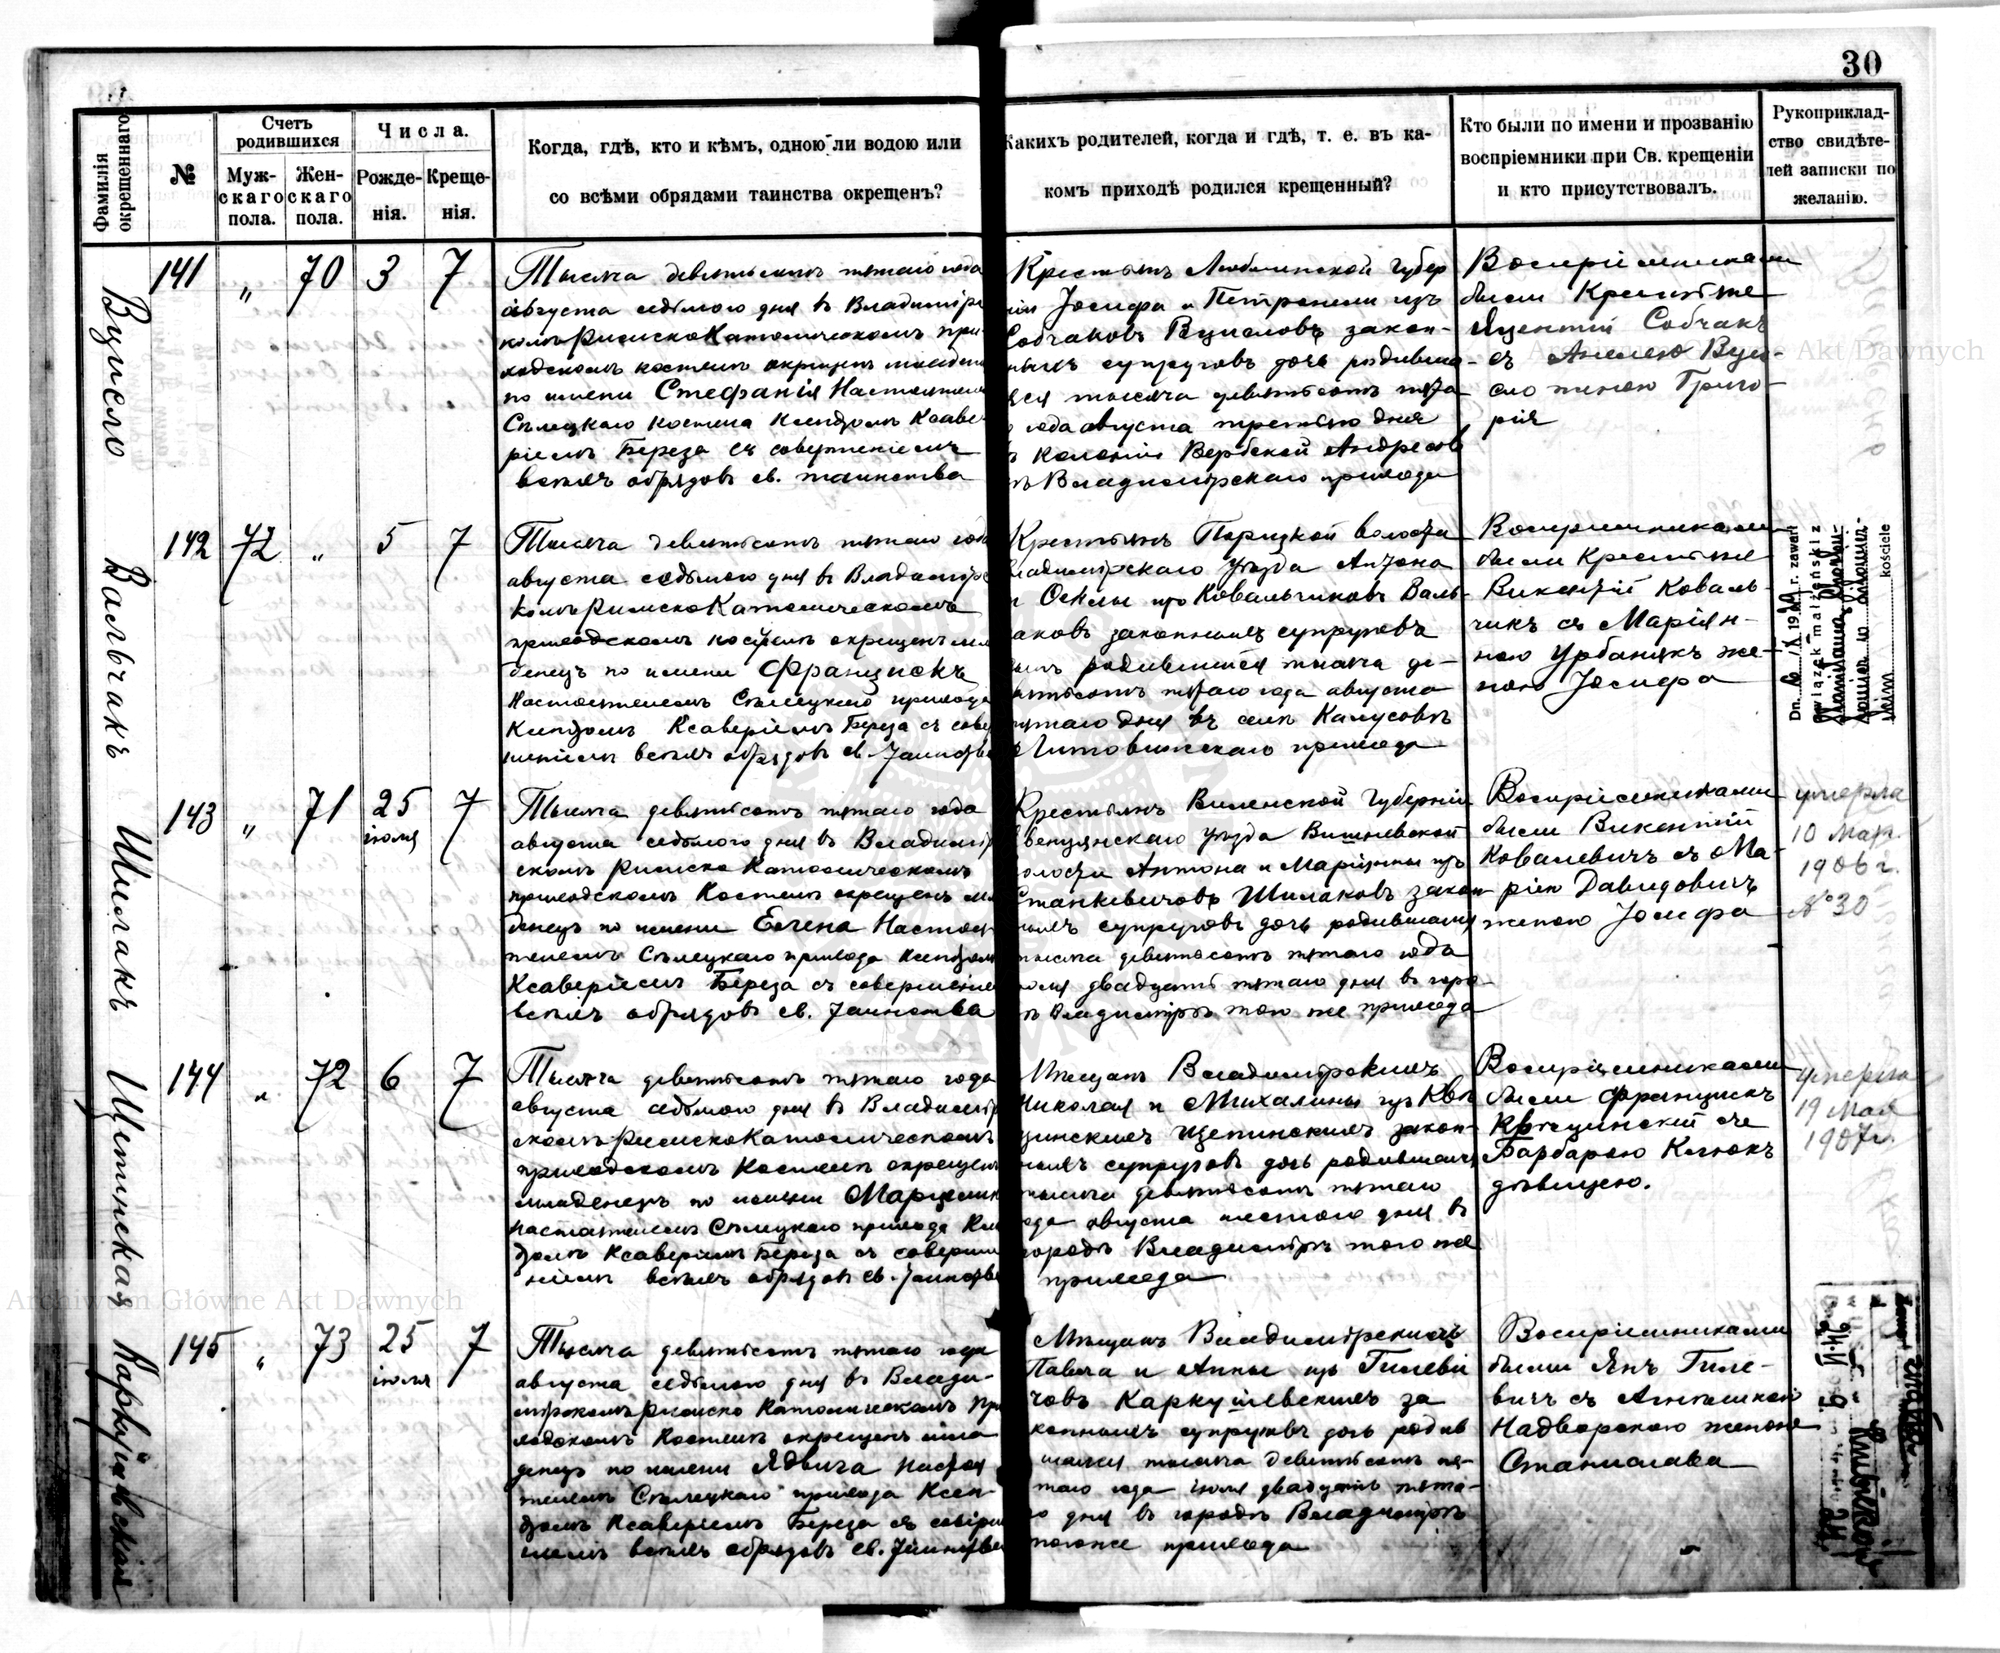 30
Фамилія окрещеннаго.
№
Счетъ родившихся
Муж-скаго пола.
Жен-скаго пола.
Числа.
Рожде-нія.
Креще-нія.
Когда, гдѣ, кто и кѣмъ, одною ли водою или
со всѣми обрядами таинства окрещенъ?
Какихъ родителей, когда и гдѣ, т. е. въ ка-
комъ приходѣ родился крещенный?
Кто были по имени и прозванію
воспріемники при Св. крещеніи
и кто присутствовалъ.
Рукоприклад-
ство свидѣте-
лей записки по
желанію.
Вуцисло
141 „ 70 3 7
Тысяча девятьсотъ пятаго года
августа седьмого дня въ Владимір
комъ Римско Католическомъ при-
ходскомъ костелѣ окрещенъ младен
по имени Стефанія Настоятелем
Сѣлецкаго костела Ксендзомъ Ксаве-
ріемъ Береза съ совершеніемъ
всѣхъ обрядовъ св. таинства
Крестьянъ Люблинской Губер
ніи Іосифа и Петронели изъ
Собчаковъ Вуцисловъ закон-
ныхъ супруговъ дочь родивша-
яся тысяча девятьсотъ пята
го года августа третьяго дня
въ колоніи Вербской Андресов
въ Владимірскаго прихода
Воспріемниками
были Крестьяне
Яцентій Собчакъ
съ Анелею Вуци-
сло женою Григо-
рія
Вальчакъ
142 72 „ 5 7
Тысяча девятьсотъ пятаго года
августа седьмого дня въ Владимірс
комъ Римско Католическомъ
приходскомъ костелѣ окрещенъ мла
денецъ по имени Францискъ
Настоятелемъ Сѣлецкаго прихода
Ксендзомъ Ксаверіемъ Береза съ совер
шеніемъ всѣхъ обрядовъ св. таинства
Крестьянъ Порицкой волости
Владимірскаго уѣзда Антона
и Оеклы изъ Ковальчиковъ Валь-
чаковъ законныхъ супруговъ
сынъ родившійся тысяча де-
вятьсотъ пятаго года августа
пятаго дня въ селѣ Калусовѣ
Литовижскаго прихода
Воспріемниками
были Крестьяне
Викентій Коваль-
чикъ съ Маріян-
ною Урбанякъ же-
ною Іосифа
zawarł
związek małżeński z
kościele
Шимакъ
143 „ 71 25 іюля 7
Тысяча девятьсотъ пятаго года
августа седьмого дня въ Владимір
скомъ Римско Католическомъ
приходскомъ Костелѣ окрещенъ мла
денецъ по имени Елена Настоя
телемъ Сѣлецкаго прихода Ксендзомъ
Ксаверіемъ Береза съ совершеніем
всѣхъ обрядовъ св. таинства
Крестьянъ Виленской Губерніи
Свенцянскаго уѣзда Вишневской
волости Антона и Маріянны изъ
Станкевичовъ Шимаковъ закон
ныхъ супруговъ дочь родившаяся
тысяча девятьсотъ пятаго года
іюля двадцать пятаго дня въ горо-
дѣ Владимірѣ того же прихода
Воспріемниками
были Викентій
Ковалевичъ съ Ма-
ріею Давидовичъ
женою Іосифа
умерла
10 Мар.
1906 г.
№ 30
Щепинская
144 „ 72 6 7
Тысяча девятьсотъ пятаго года
августа седьмого дня въ Владимір
скомъ Римско Католическомъ
приходскомъ Костелѣ окрещенъ
младенецъ по имени Марцелина
Настоятелемъ Сѣлецкаго прихода Ксен
дзомъ Ксаверіемъ Береза съ соверше
ніемъ всѣхъ обрядовъ св. таинства
Мѣщанъ Владимірскихъ
Николая и Михалины изъ Кве
цинскихъ Щепинскихъ закон-
ныхъ супруговъ дочь родившаяся
тысяча девятьсотъ пятаго
года августа шестого дня въ
городѣ Владимірѣ того же
прихода
Воспріемниками
были Францискъ
съ
Барбарою Клюкъ
дѣвицею.
умерла
19 Мая
1907 г.
Каркушевская
145 „ 73 25 іюля 7
Тысяча девятьсотъ пятаго года
августа седьмого дня въ Влади-
мірскомъ Римско Католическомъ при
ходскомъ Костелѣ окрещенъ мла
денецъ по имени Ядвига Настоя
телемъ Сѣлецкаго прихода Ксен-
дзомъ Ксаверіемъ Береза съ соверш
ніемъ всѣхъ обрядовъ св. таинства
Мѣщанъ Владимірскихъ
Павла и Анны изъ Гилеви
човъ Каркушевскихъ за
конныхъ супруговъ дочь родив
шаяся тысяча девятьсотъ пя-
таго года іюля двадцать пята-
го дня въ городѣ Владимірѣ
того же прихода
Воспріемниками
были Янъ Гиле-
вичъ съ
Надворскою женою
Станислава
Archiwum Główne Akt Dawnych
Archiwum Główne Akt Dawnych